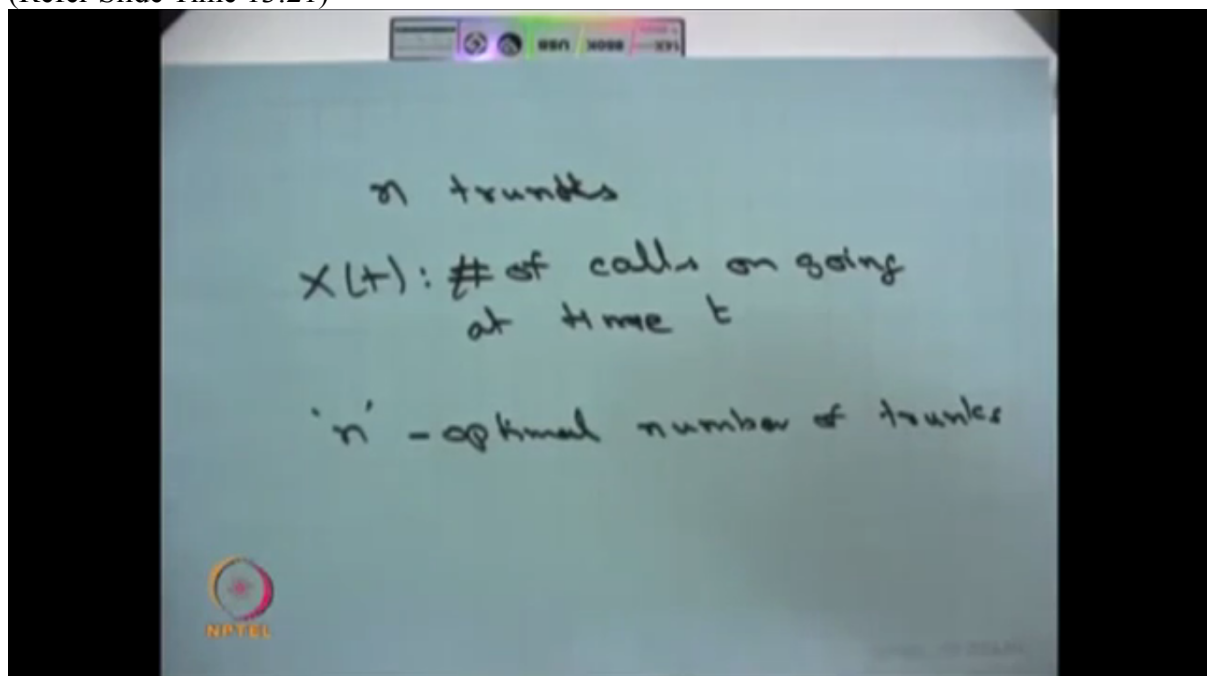 (Refer Slide Time 15:21)
n trunks
X(t): # of calls on going
at time t
'n' - optimal number of trunks
NPTEL